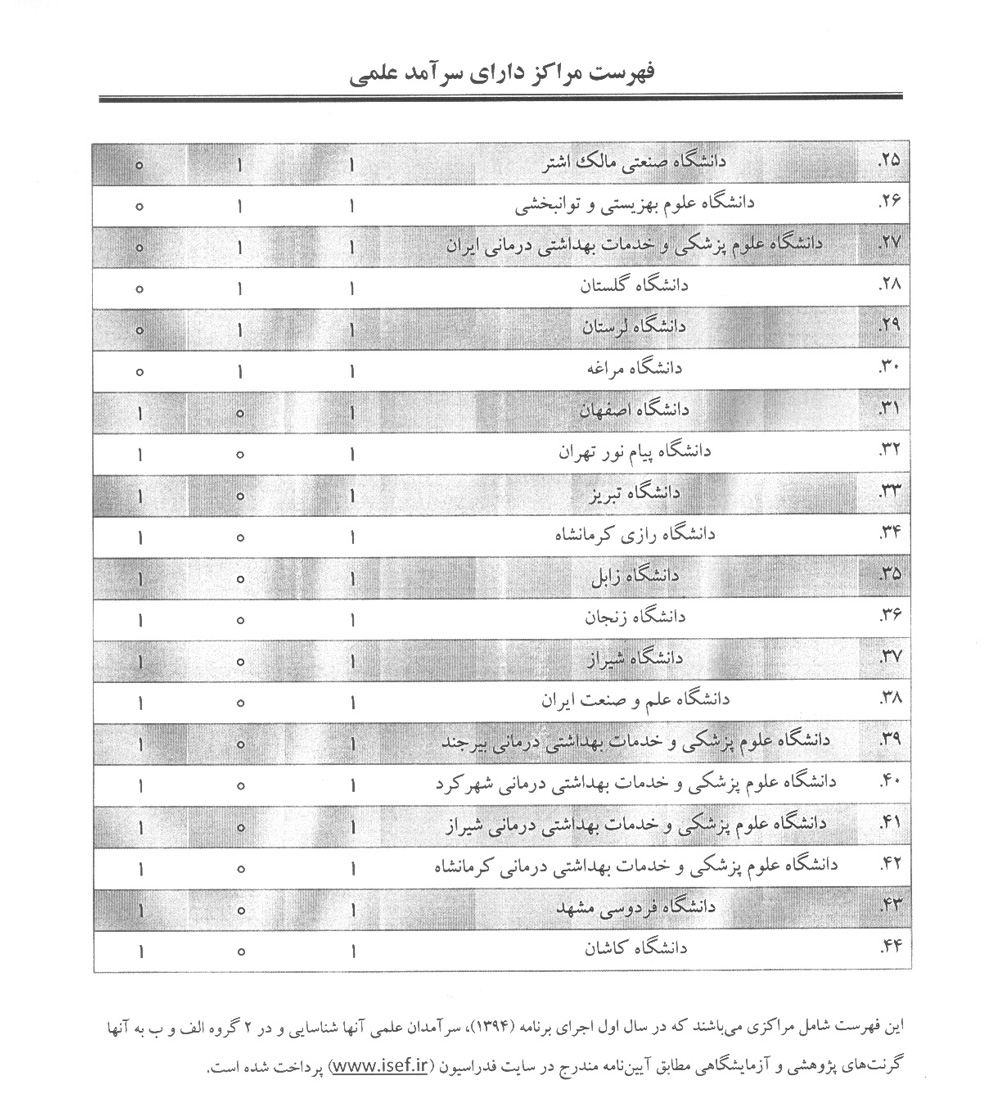 فهرست مراکز دارای سرآمد علمی
۲۵. دانشگاه صنعتی مالک اشتر ۱ ۱ ۰
۲۶. دانشگاه علوم بهزیستی و توانبخشی ۱ ۱ ۰
۲۷. دانشگاه علوم پزشکی و خدمات بهداشتی درمانی ایران ۱ ۱ ۰
۲۸. دانشگاه گلستان ۱ ۱ ۰
۲۹. دانشگاه لرستان ۱ ۱ ۰
۳۰. دانشگاه مراغه ۱ ۱ ۰
۳۱. دانشگاه اصفهان ۱ ۰ ۱
۳۲. دانشگاه پیام نور تهران ۱ ۰ ۱
۳۳. دانشگاه تبریز ۱ ۰ ۱
۳۴. دانشگاه رازی کرمانشاه ۱ ۰ ۱
۳۵. دانشگاه زابل ۱ ۰ ۱
۳۶. دانشگاه زنجان ۱ ۰ ۱
۳۷. دانشگاه شیراز ۱ ۰ ۱
۳۸. دانشگاه علم و صنعت ایران ۱ ۰ ۱
۳۹. دانشگاه علوم پزشکی و خدمات بهداشتی درمانی بیرجند ۱ ۰ ۱
۴۰. دانشگاه علوم پزشکی و خدمات بهداشتی درمانی شهرکرد ۱ ۰ ۱
۴۱. دانشگاه علوم پزشکی و خدمات بهداشتی درمانی شیراز ۱ ۰ ۱
۴۲. دانشگاه علوم پزشکی و خدمات بهداشتی درمانی کرمانشاه ۱ ۰ ۱
۴۳. دانشگاه فردوسی مشهد ۱ ۰ ۱
۴۴. دانشگاه کاشان ۱ ۰ ۱
این فهرست شامل مراکزی می‌باشند که در سال اول اجرای برنامه (۱۳۹۴)، سرآمدان علمی آنها شناسایی و در ۲ گروه الف و ب به آنها
گرنت‌های پژوهشی و آزمایشگاهی مطابق آیین‌نامه مندرج در سایت فدراسیون (www.isef.ir) پرداخت شده است.